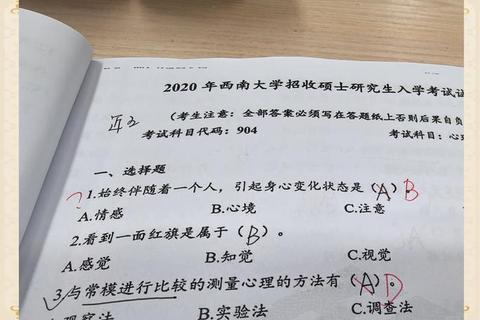 2020 年西南大学招收硕士研究生入学考试试
(考生注意：全部答案必须写在答题纸上否则后果自负
考试科目代码：904 考试科目：心
一、选择题
?1.始终伴随着一个人，引起身心变化状态是（A）。B
A.情感 B.心境 C.注意
2.看到一面红旗是属于（B）。
A.感觉 B.知觉 C.视觉
3.与常模进行比较的测量心理的方法有（A）。D
B.实验法 C.调查法